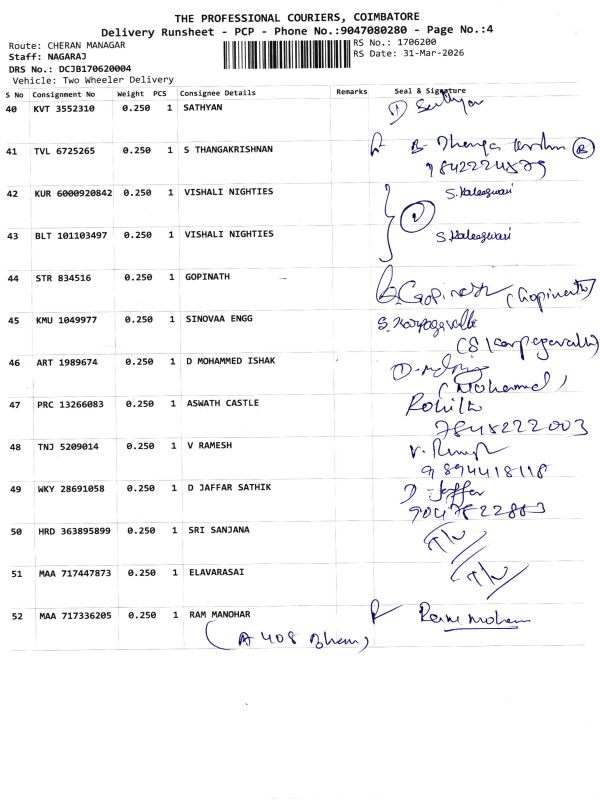 THE PROFESSIONAL COURIERS, COIMBATORE
Delivery Runsheet - PCP - Phone No.:9047080280 - Page No.:4
Route: CHERAN MANAGAR RS No.: 1706200
Staff: NAGARAJ RS Date: 31-Mar-2026
DRS No.: DCJB170620004
Vehicle: Two Wheeler Delivery
S No Consignment No Weight PCS Consignee Details Remarks Seal & Signature
40 KVT 3552310 0.250 1 SATHYAN Sathyan
41 TVL 6725265 0.250 1 S THANGAKRISHNAN
42 KUR 6000920842 0.250 1 VISHALI NIGHTIES S. Kaleeswari
43 BLT 101103497 0.250 1 VISHALI NIGHTIES S. Kaleeswari
44 STR 834516 0.250 1 GOPINATH Gopinath (Gopinath)
45 KMU 1049977 0.250 1 SINOVAA ENGG S. Karpagavalli
(S Karpagavalli)
46 ART 1989674 0.250 1 D MOHAMMED ISHAK
(Mohamed)
47 PRC 13266083 0.250 1 ASWATH CASTLE
7848222003
48 TNJ 5209014 0.250 1 V RAMESH
9894418118
49 WKY 28691058 0.250 1 D JAFFAR SATHIK D. Jaffar
50 HRD 363895899 0.250 1 SRI SANJANA
51 MAA 717447873 0.250 1 ELAVARASAI
52 MAA 717336205 0.250 1 RAM MANOHAR
(A 408